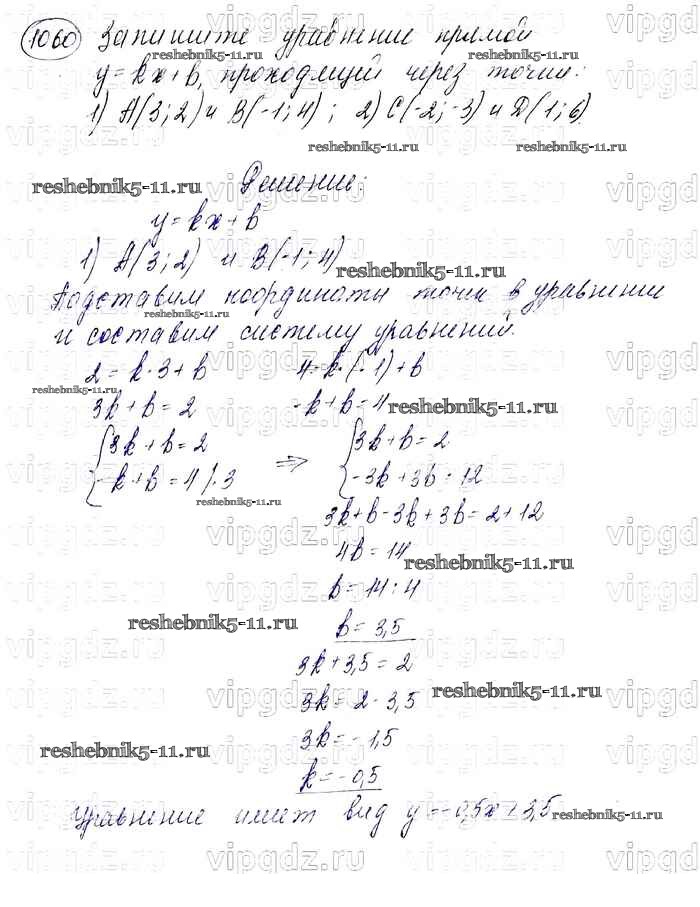 1060 Запишите уравнение прямой
y=kx+b, проходящей через точки:
1) A(3;2) и B(-1;4); 2) C(-2;-3) и D(1;6).
Решение:
y=kx+b
1) A(3;2) и B(-1;4)
Подставим координаты точек в уравнение
и составим систему уравнений.
2=k·3+b 4=k·(-1)+b
3k+b=2 -k+b=4
{3k+b=2
-k+b=4 /·3
=> {3k+b=2
-3k+3b=12
3k+b-3k+3b=2+12
4b=14
b=14:4
b=3,5
3k+3,5=2
3k=2-3,5
3k=-1,5
k=-0,5
Уравнение имеет вид y=-0,5x+3,5
reshebnik5-11.ru
vipgdz.ru